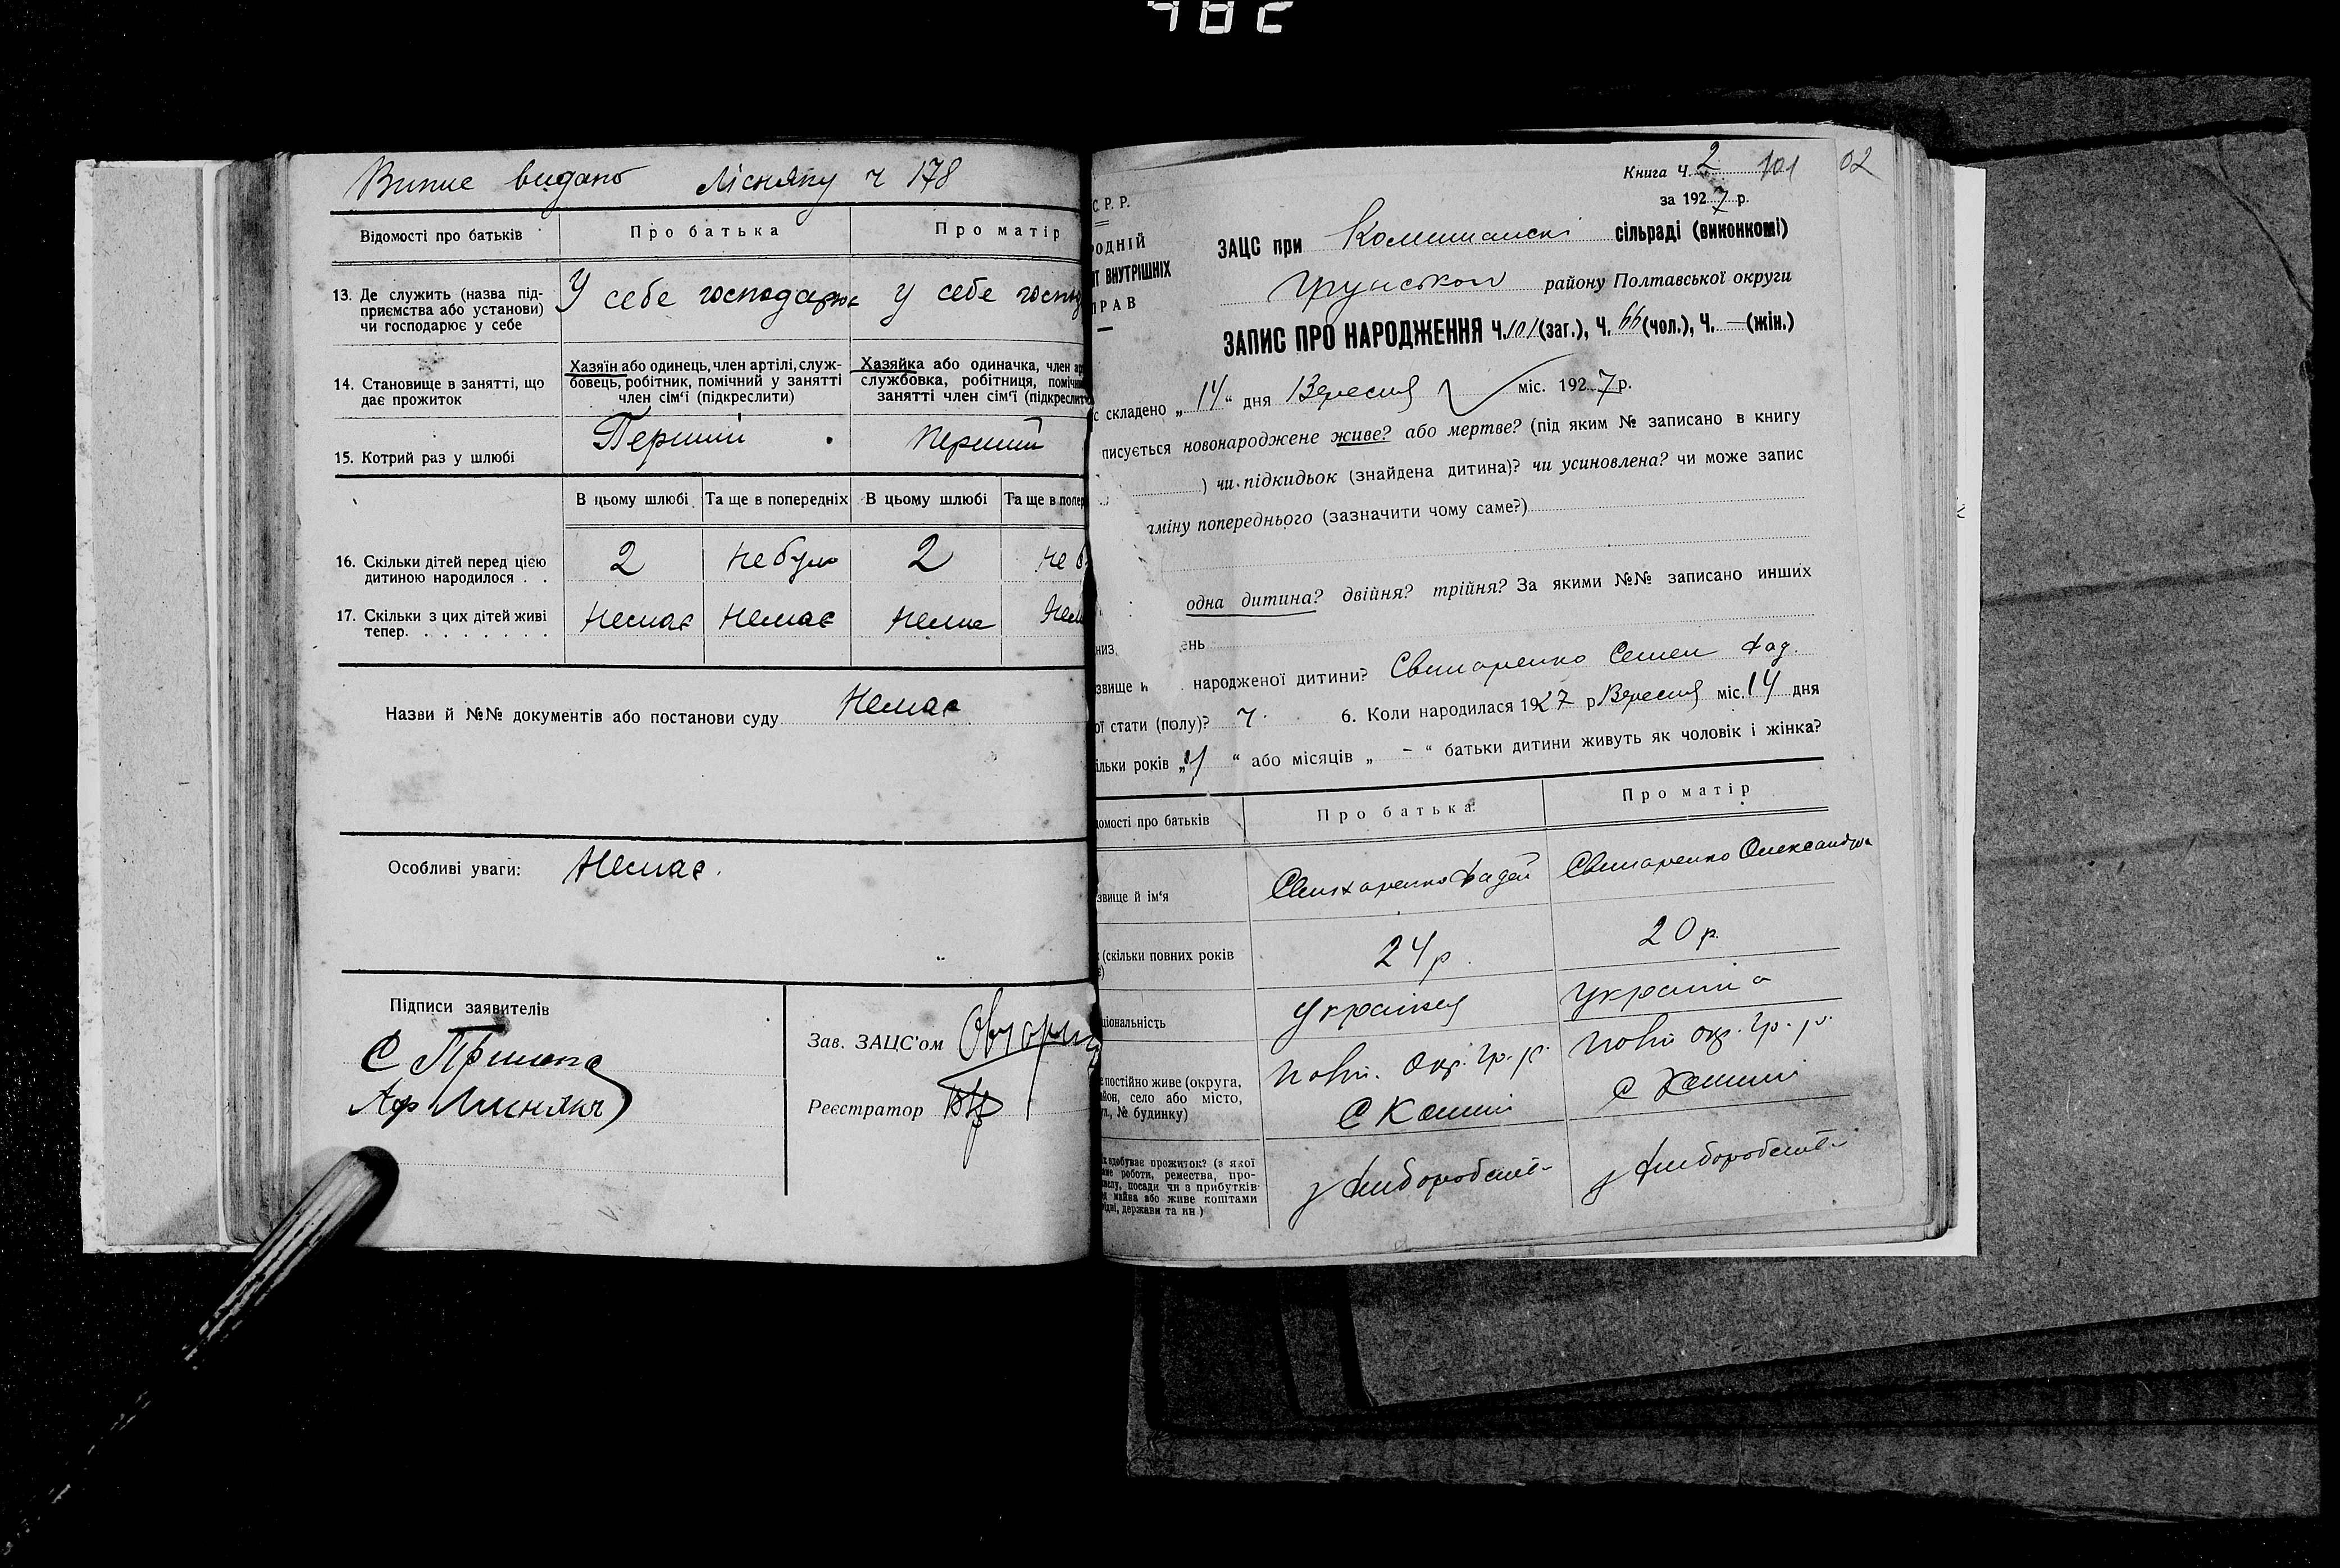 Випис видано Лісняку ч 178
Відомості про батьків
Про батька
Про матір
13. Де служить (назва під-
приємства або установи)
чи господарює у себе
У себе господарює
у себе госпо
14. Становище в занятті, що
дає прожиток
Хазяїн або одинець, член артілі, служ-
бовець, робітник, помічний у занятті
член сім'ї (підкреслити)
Хазяйка або одиначка, член ар
службовка, робітниця, поміч
занятті член сім'ї (підкреслит
15. Котрий раз у шлюбі
Перший
перший
В цьому шлюбі
Та ще в попередніх
В цьому шлюбі
Та ще в попер
16. Скільки дітей перед цією
дитиною народилося . .
2
не було
2
не б
17. Скільки з цих дітей живі
тепер. . . . . . . .
Немає
Немає
Немає
Нем
Назви й №№ документів або постанови суду
Немає
Особливі уваги: Немає.
Підписи заявителів
Зав. ЗАЦС'ом
Реєстратор
Книга Ч. 2 101 02
за 1927 р.
С. Р. Р.
РОДНІЙ
Т ВНУТРІШНІХ
ПРАВ
ЗАЦС при Комишанскі сільраді (виконкомі)
Грунськом району Полтавської округи
ЗАПИС ПРО НАРОДЖЕННЯ Ч. 101 (заг.), Ч. 66 (чол.), Ч. — (жін.)
с складено „ 14 “ дня Вересня міс. 1927 р.
писується новонароджене живе? або мертве? (під яким № записано в книгу
) чи підкидьок (знайдена дитина)? чи усиновлена? чи може запис
аміну попереднього (зазначити чому саме?)
одна дитина? двійня? трійня? За якими №№ записано инших
низ ень
звище н народженої дитини? Свинаренко Семен Фад.
ої стати (полу)? ч. 6. Коли народилася 1927 р Вересня міс. 14 дня
ільки років „ “ або місяців „ – “ батьки дитини живуть як чоловік і жінка?
домості про батьків
Про батька
Про матір
звище й ім'я
Свинаренко Фадей
Свинаренко Олександра
(скільки повних років
24 р.
20 р.
ціональність
Україн
постійно живе (округа,
йон, село або місто,
л., № будинку)
Окр. Гр. р.
окр. Гр. р.
здобуває прожиток? (з якої
ме роботи, ремества, про-
мслу, посади чи з прибутків
д майва або живе коштами
ідні, держави та ин)
з хліборобства
з хліборобства